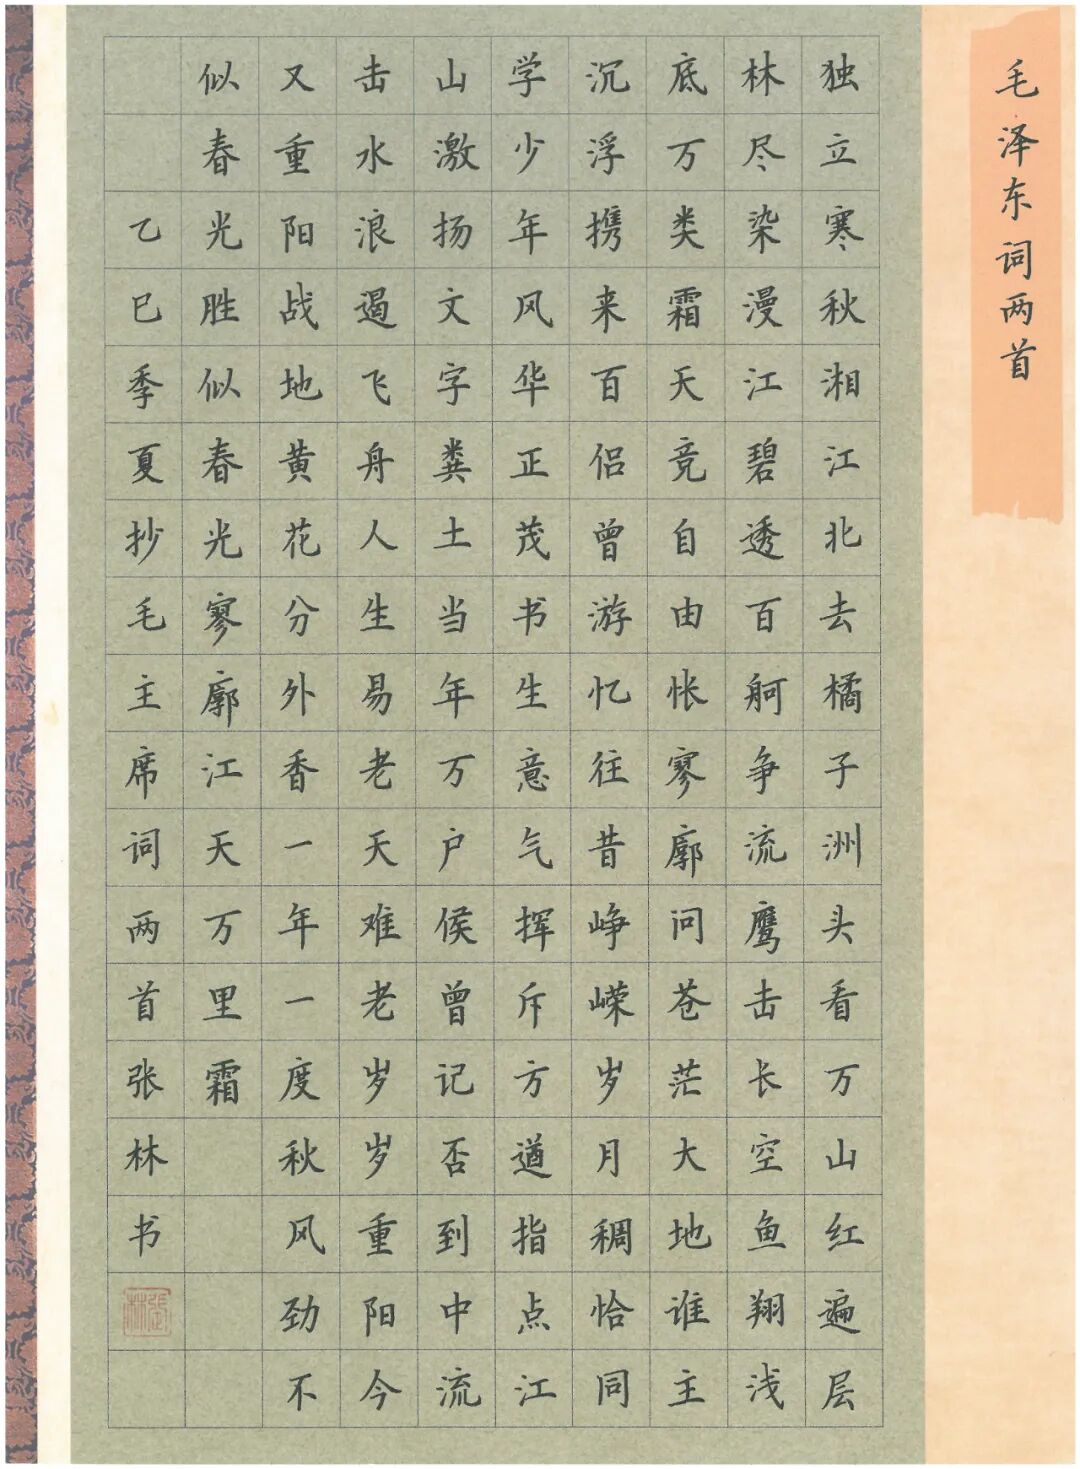 毛泽东词两首
独立寒秋湘江北去橘子洲头看万山红遍层
林尽染漫江碧透百舸争流鹰击长空鱼翔浅
底万类霜天竞自由怅寥廓问苍茫大地谁主
沉浮携来百侣曾游忆往昔峥嵘岁月稠恰同
学少年风华正茂书生意气挥斥方遒指点江
山激扬文字粪土当年万户侯曾记否到中流
击水浪遏飞舟人生易老天难老岁岁重阳今
又重阳战地黄花分外香一年一度秋风劲不
似春光胜似春光寥廓江天万里霜
乙巳季夏抄毛主席词两首张林书
張林